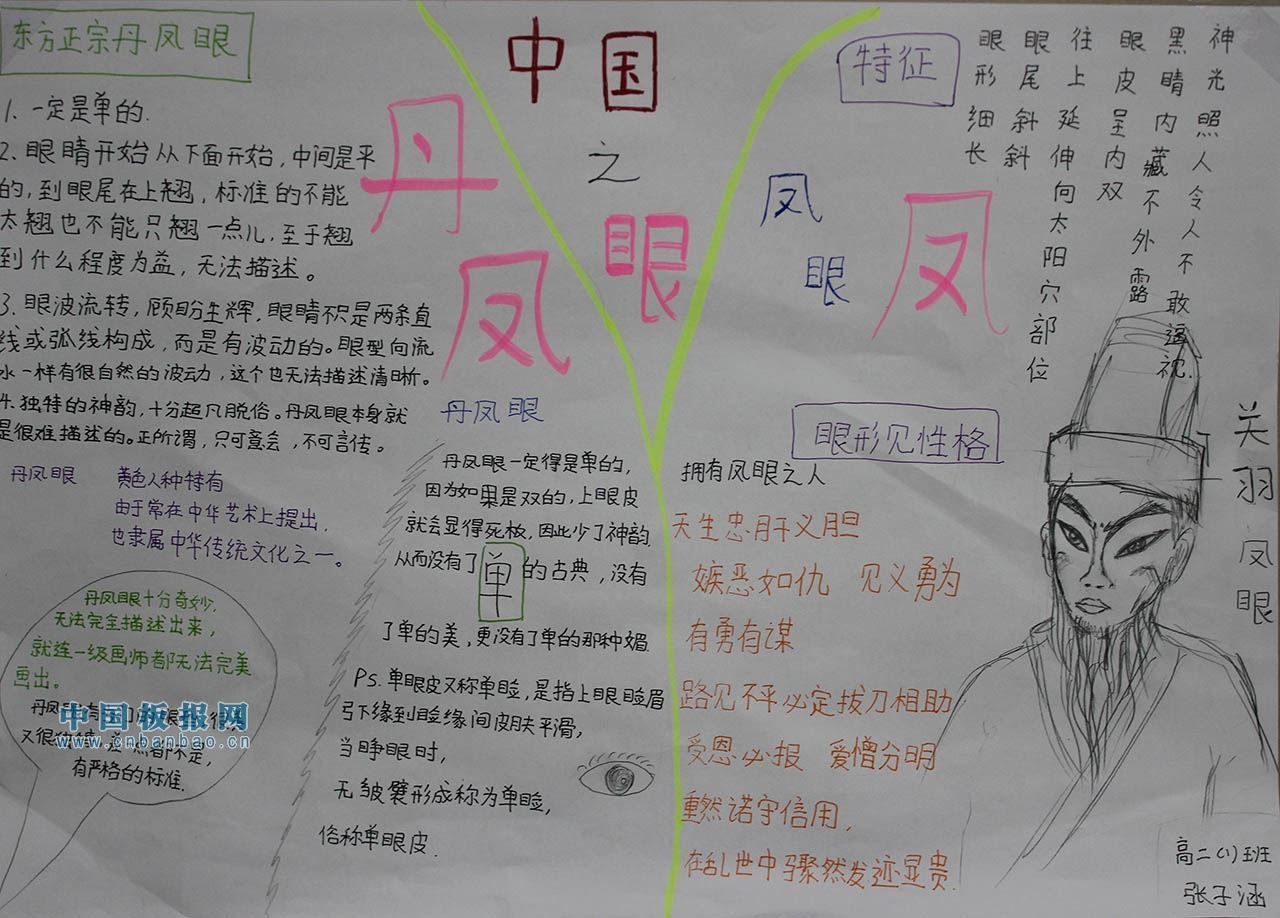 东方正宗丹凤眼
1. 一定是单的.
2. 眼睛开始从下面开始,中间是平
的,到眼尾在上翘,标准的不能
太翘也不能只翘一点儿,至于翘
到什么程度为益,无法描述。
3. 眼波流转,顾盼生辉,眼睛不只是两条直
线或弧线构成,而是有波动的。眼型向流
水一样有很自然的波动,这个也无法描述清晰。
4. 独特的神韵,十分超凡脱俗。丹凤眼本身就
是很难描述的。正所谓,只可意会,不可言传。
丹凤眼 黄色人种特有
由于常在中华艺术上提出,
也隶属中华传统文化之一。
丹凤眼十分奇妙,
无法完全描述出来,
就连一级画师都无法完美
画出。
丹凤
又很
有严格的标准.
中国板报网
www.cnbanbao.cn
中国
之
眼
丹
凤
丹凤眼
丹凤眼一定得是单的,
因为如果是双的,上眼皮
就会显得死板,因此少了神韵.
从而没有了单的古典,没有
了单的美,更没有了单的那种媚.
Ps. 单眼皮又称单睑,是指上眼睑眉
弓下缘到睑缘间皮肤平滑,
当睁眼时,
无皱襞形成称为单睑,
俗称单眼皮.
特征
凤
眼
凤
眼形细长
眼尾斜斜
往上延伸向太阳穴部位
眼皮呈内双
黑睛内藏不外露
神光照人令人不敢逼视.
眼形见性格
拥有凤眼之人
天生忠肝义胆
嫉恶如仇 见义勇为
有勇有谋
路见不平必定拔刀相助
受恩必报 爱憎分明
重然诺守信用,
在乱世中骤然发迹显贵.
关羽凤眼
高二(1)班
张子涵